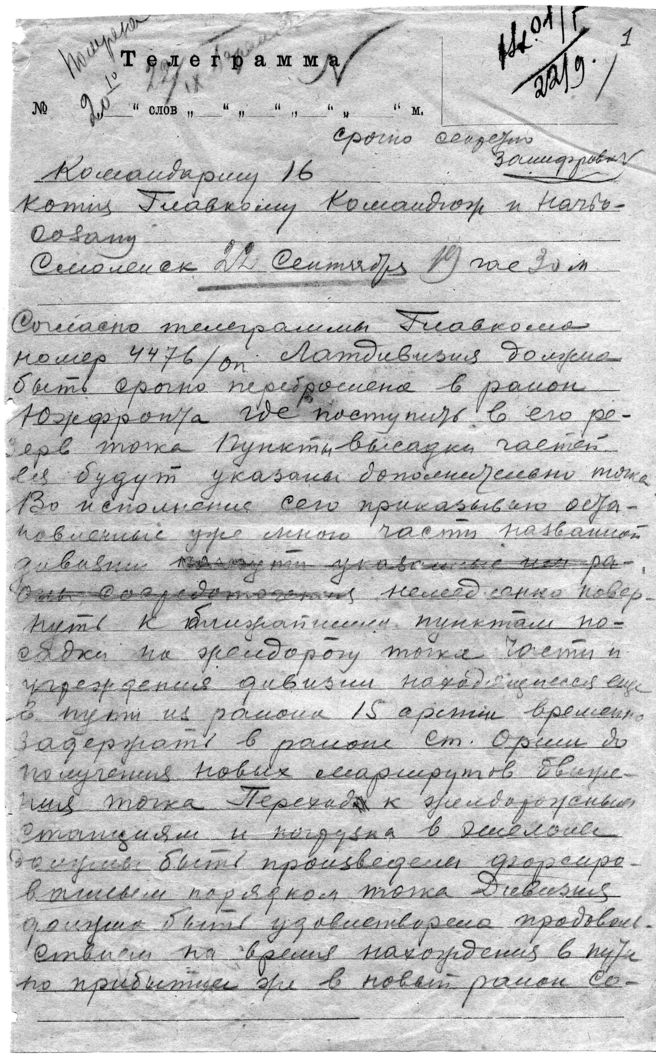 1
Телеграмма
№ 20 “ слов „ “ „ “ „ “ „ “ м.
22/IX
22/9
срочно секретно
Зашифровать
Командарму 16
копия Главкому Командюж и Начво-
созапу
Смоленск 22 Сентября 19 час 30 м
Согласно телеграммы Главкома
номер 4476/оп Латдивизия должна
быть срочно переброшена в район
Южфронта где поступить в его ре-
зерв точка Пункты высадки частей
ея будут указаны дополнительно точка
Во исполнение сего приказываю оста-
новленные уже мною части названной
дивизии по пути указанные им ра-
оны сосредоточения немедленно повер-
нуть к ближайшим пунктам по-
садки на желдорогу точка Части и
учреждения дивизии находящиеся еще
в пути из района 15 армии временно
задержать в районе ст. Орши до
получения новых маршрутов движе-
ния точка Переход к желдорожным
станциям и погрузка в эшелоны
должны быть произведены форсиро-
ванным порядком точка Дивизия
должна быть удовлетворена продоволь-
ствием на время нахождения в пути
по прибытии же в новый район со-